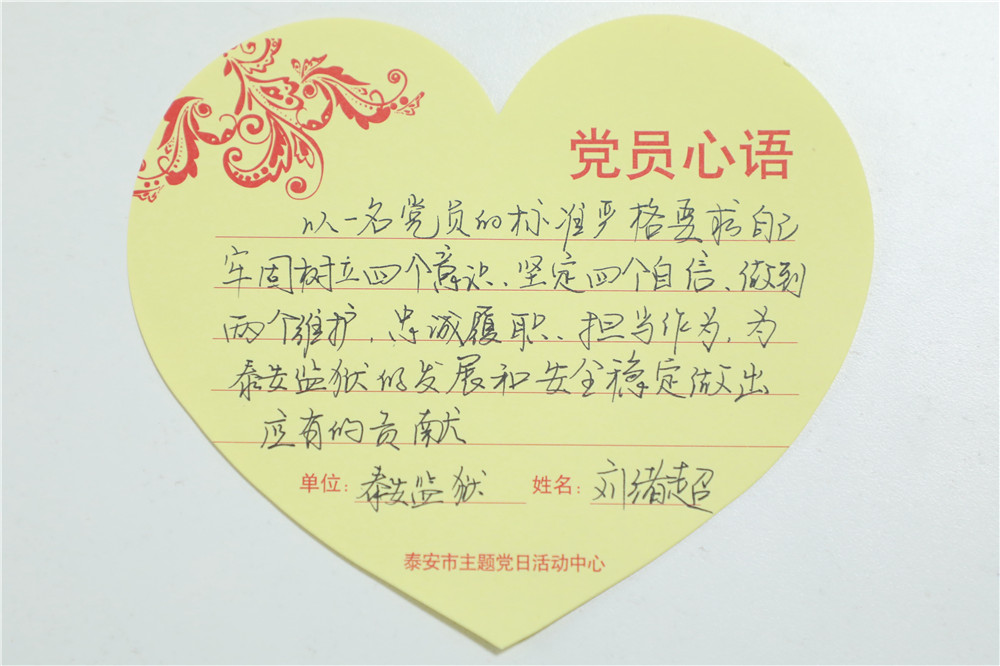 党员心语
以一名党员的标准严格要求自己
牢固树立四个意识、坚定四个自信、做到
两个维护，忠诚履职、担当作为，为
泰安监狱的发展和安全稳定做出
应有的贡献
单位：泰安监狱 姓名：刘绪超
泰安市主题党日活动中心